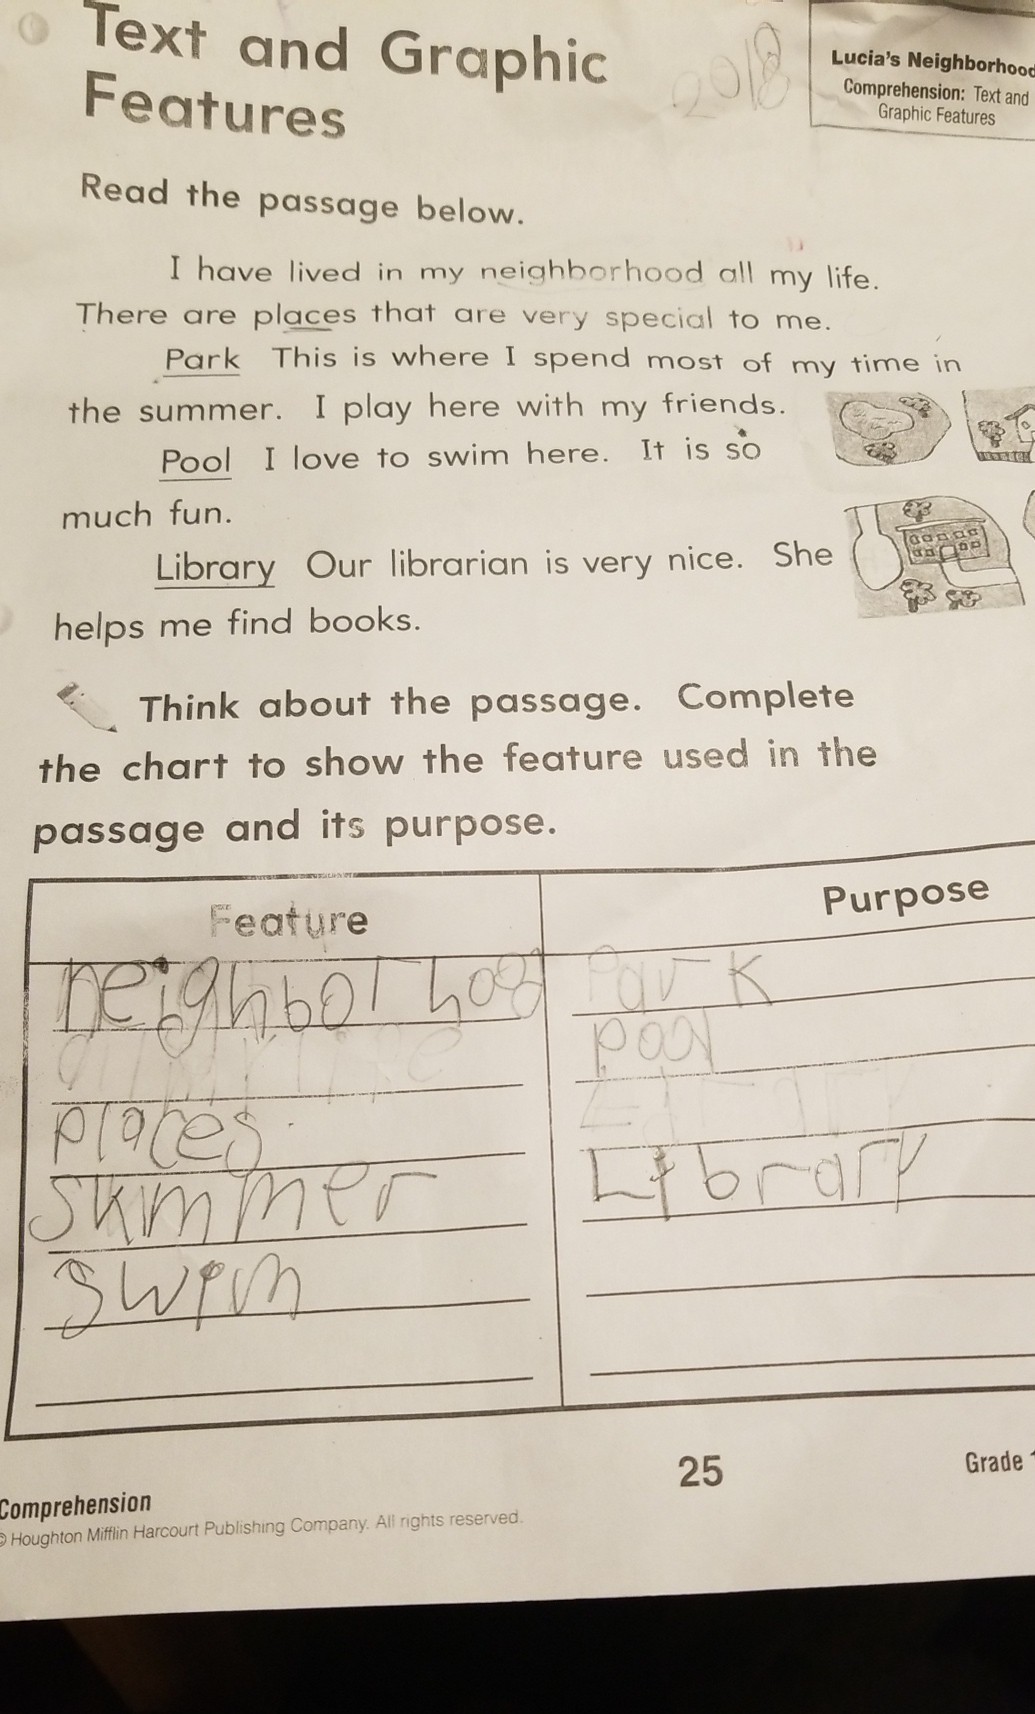 Text and Graphic
Features
2018
Lucia's Neighborhood
Comprehension: Text and
Graphic Features
Read the passage below.
I have lived in my neighborhood all my life.
There are places that are very special to me.
Park This is where I spend most of my time in
the summer. I play here with my friends.
Pool I love to swim here. It is so
much fun.
Library Our librarian is very nice. She
helps me find books.
Think about the passage. Complete
the chart to show the feature used in the
passage and its purpose.
Feature
Purpose
neighborhood
Park
pool
places
summer
Library
swim
Comprehension
25
Grade 1
© Houghton Mifflin Harcourt Publishing Company. All rights reserved.